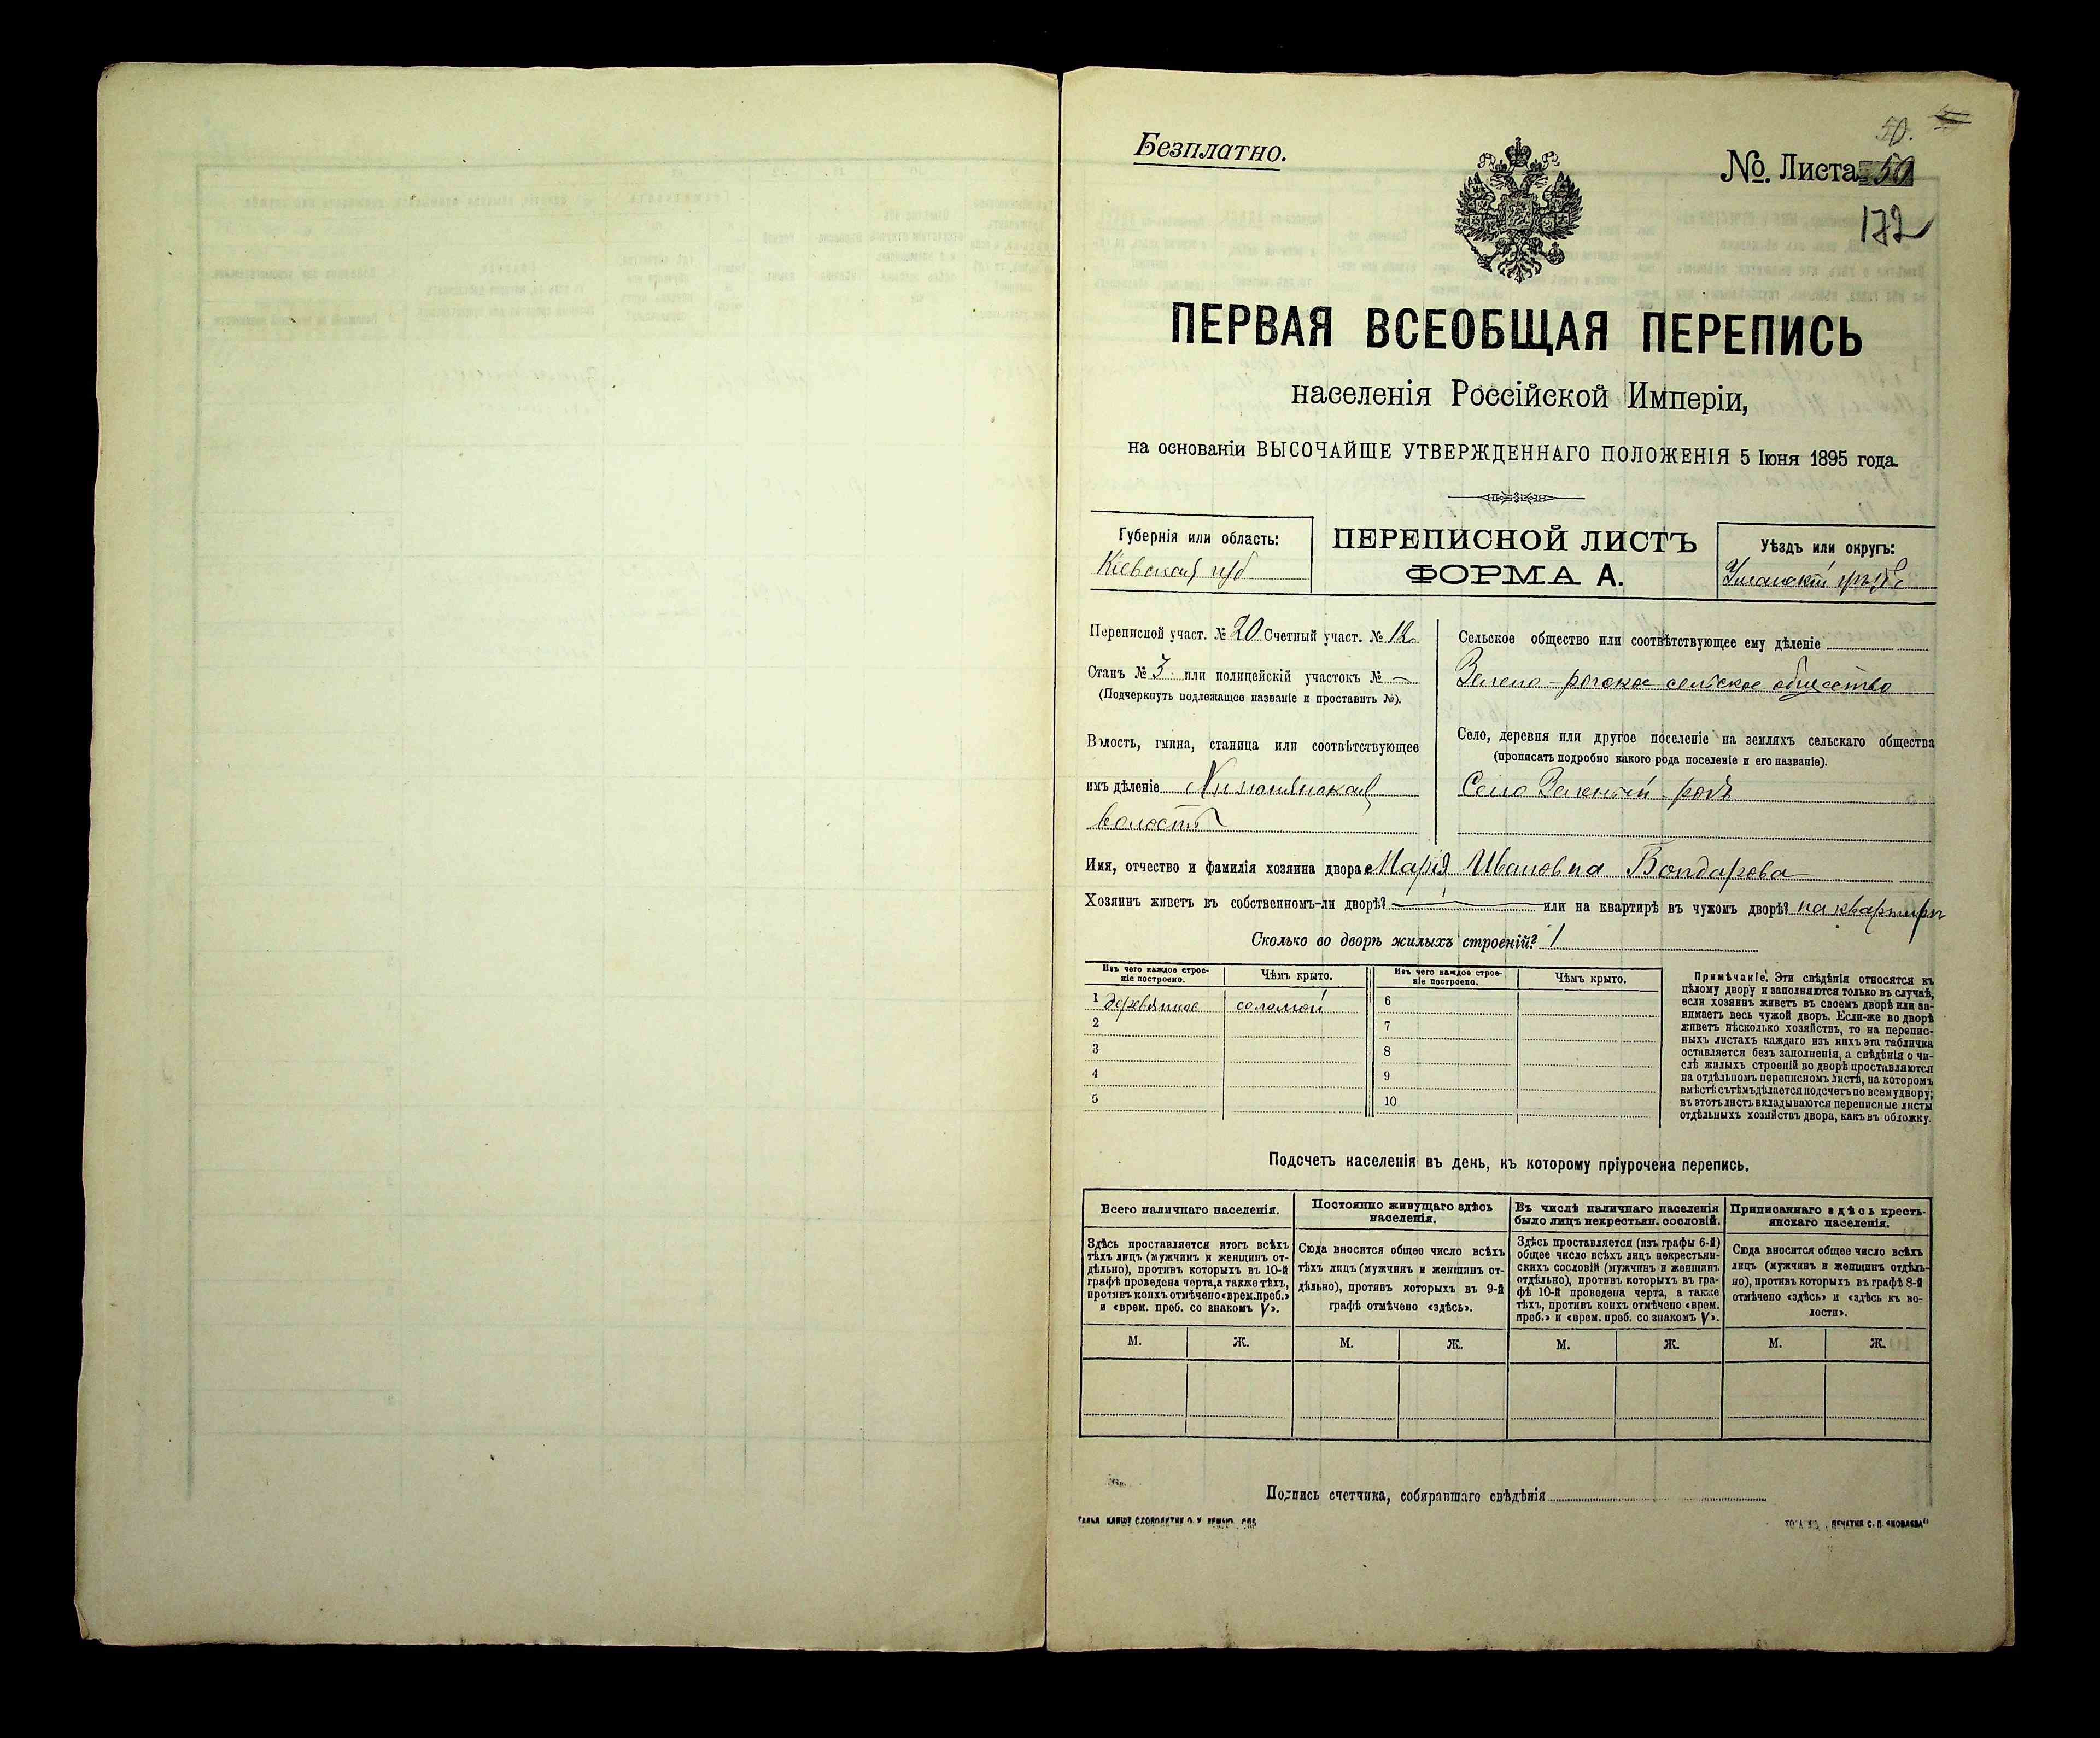 Безплатно.
50.
№. Листа 50
172
ПЕРВАЯ ВСЕОБЩАЯ ПЕРЕПИСЬ
населенія Россійской Имперіи,
на основаніи ВЫСОЧАЙШЕ УТВЕРЖДЕННАГО ПОЛОЖЕНІЯ 5 Іюня 1895 года.
Губернія или область:
Кіевская губ
ПЕРЕПИСНОЙ ЛИСТЪ
ФОРМА А.
Уѣздъ или округъ:
Уманскій уѣздъ
Переписной участ. № 20 Счетный участ. № 12
Станъ № 3 или полицейскій участокъ № —
(Подчеркнуть подлежащее названіе и проставить №).
Волость, гмина, станица или соотвѣтствующее
имъ дѣленіе
волость
Сельское общество или соотвѣтствующее ему дѣленіе
Зелено-рогское сельское общество
Село, деревня или другое поселеніе на земляхъ сельскаго общества
(прописать подробно какого рода поселеніе и его названіе).
Село Зеленый-рогъ
Имя, отчество и фамилія хозяина двора Марія Ивановна Бондарева
Хозяинъ живетъ въ собственномъ-ли дворѣ? — или на квартирѣ въ чужомъ дворѣ? на квартирѣ
Сколько во дворѣ жилыхъ строеній? 1
Изъ чего каждое строе-
ніе построено.
Чѣмъ крыто.
Изъ чего каждое строе-
ніе построено.
Чѣмъ крыто.
1 деревянное соломой 6
2 7
3 8
4 9
5 10
Примѣчаніе. Эти свѣдѣнія относятся къ
цѣлому двору и заполняются только въ случаѣ,
если хозяинъ живетъ въ своемъ дворѣ или за-
нимаетъ весь чужой дворъ. Если-же во дворѣ
живетъ нѣсколько хозяйствъ, то на перепис-
ныхъ листахъ каждаго изъ нихъ эта табличка
оставляется безъ заполненія, а свѣдѣнія о чи-
слѣ жилыхъ строеній во дворѣ проставляются
на отдѣльномъ переписномъ листѣ, на которомъ
вмѣстѣ съ тѣмъ дѣлается подсчетъ по всему двору;
въ этотъ листъ вкладываются переписные листы
отдѣльныхъ хозяйствъ двора, какъ въ обложку.
Подсчетъ населенія въ день, къ которому пріурочена перепись.
Всего наличнаго населенія.
Здѣсь проставляется итогъ всѣхъ
тѣхъ лицъ (мужчинъ и женщинъ от-
дѣльно), противъ которыхъ въ 10-й
графѣ проведена черта, а также тѣхъ,
противъ коихъ отмѣчено «врем. преб.»
и «врем. преб. со знакомъ V».
М. Ж.
Постоянно живущаго здѣсь
населенія.
Сюда вносится общее число всѣхъ
тѣхъ лицъ (мужчинъ и женщинъ от-
дѣльно), противъ которыхъ въ 9-й
графѣ отмѣчено «здѣсь».
М. Ж.
Въ числѣ наличнаго населенія
было лицъ некрестьян. сословій.
Здѣсь проставляется (изъ графы 6-й)
общее число всѣхъ лицъ некрестьян-
скихъ сословій (мужчинъ и женщинъ
отдѣльно), противъ которыхъ въ гра-
фѣ 10-й проведена черта, а также
тѣхъ, противъ коихъ отмѣчено «врем.
преб.» и «врем. преб. со знакомъ V».
М. Ж.
Приписаннаго здѣсь кресть-
янскаго населенія.
Сюда вносится общее число всѣхъ
лицъ (мужчинъ и женщинъ отдѣль-
но), противъ которыхъ въ графѣ 8-й
отмѣчено «здѣсь» и «здѣсь къ во-
лости».
М. Ж.
Подпись счетчика, собиравшаго свѣдѣнія